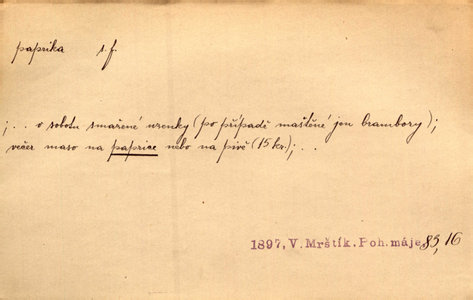 paprika s.f.
; . . o sobotu smažené uzenky (po případě maštěné jen brambory);
večer maso na paprice nebo na pivě (15 kr.); . .
1897, V. Mrštík. Poh. máje 83, 16